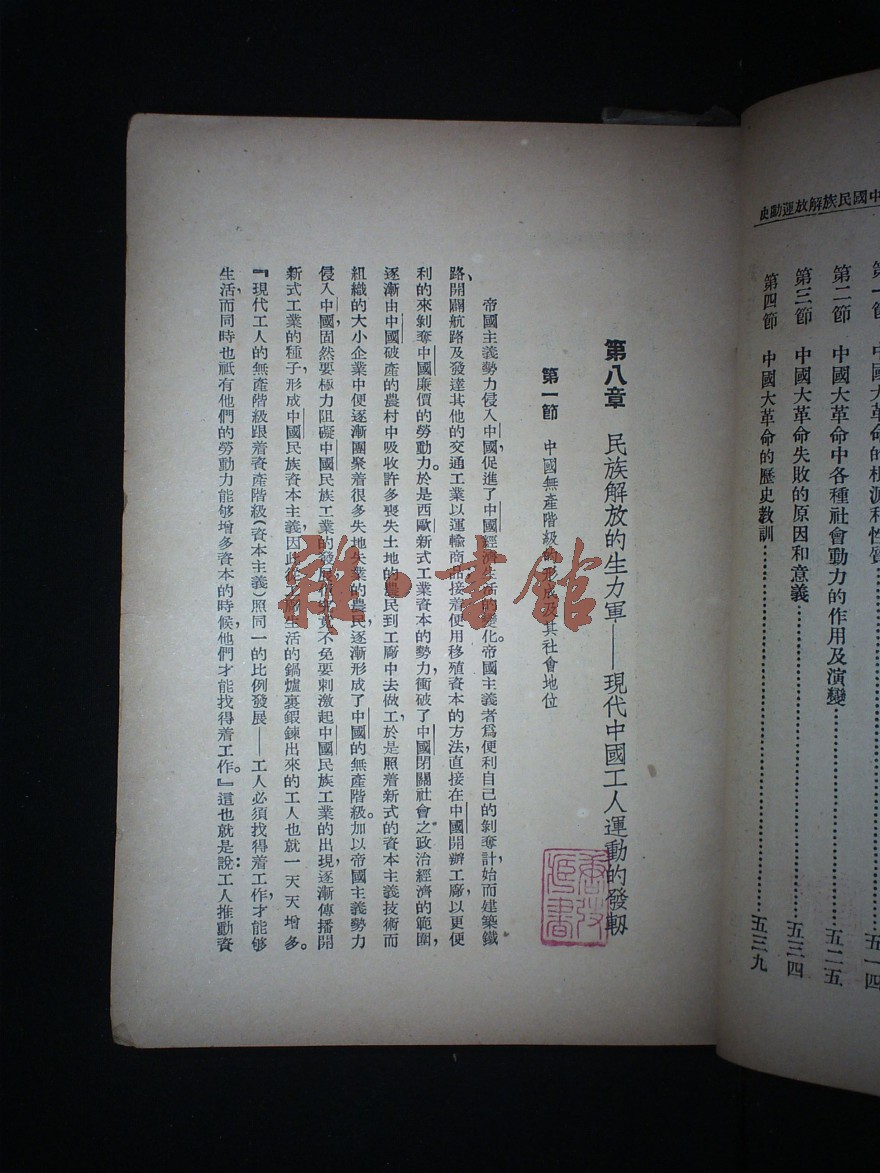 中國民族解放運動史
第一節　中國大革命的根源和性質……五一四
第二節　中國大革命中各種社會動力的作用及演變……五二五
第三節　中國大革命失敗的原因和意義……五三四
第四節　中國大革命的歷史教訓……五三九
第八章　民族解放的生力軍——現代中國工人運動的發軔
第一節　中國無產階級的形成及其社會地位
帝國主義勢力侵入中國，促進了中國經濟生活的變化。帝國主義者爲便利自己的剝奪計，始而建築鐵
路、開闢航路及發達其他的交通工業以運輸商品，接着便用移殖資本的方法，直接在中國開辦工廠，以更便
利的來剝奪中國廉價的勞動力。於是西歐新式工業資本的勢力，衝破了中國閉關社會之政治經濟的範圍，
逐漸由中國破產的農村中吸收許多喪失土地的農民到工廠中去做工，於是照着新式的資本主義技術而
組織的大小企業中便逐漸團聚着很多失地失業的農民，逐漸形成了中國的無產階級。加以帝國主義勢力
侵入中國，固然要極力阻礙中國民族工業的發展，但究竟不免要刺激起中國民族工業的出現，逐漸傳播開
新式工業的種子，形成中國民族資本主義，因此從工廠生活的鍋爐裏鍛鍊出來的工人也就一天天增多。
『現代工人的無產階級跟着資產階級（資本主義）照同一的比例發展——工人必須找得着工作，才能够
生活，而同時也祇有他們的勞動力能够增多資本的時候，他們才能找得着工作。』這也就是說：工人推動資
唐弢藏書
雜·書館